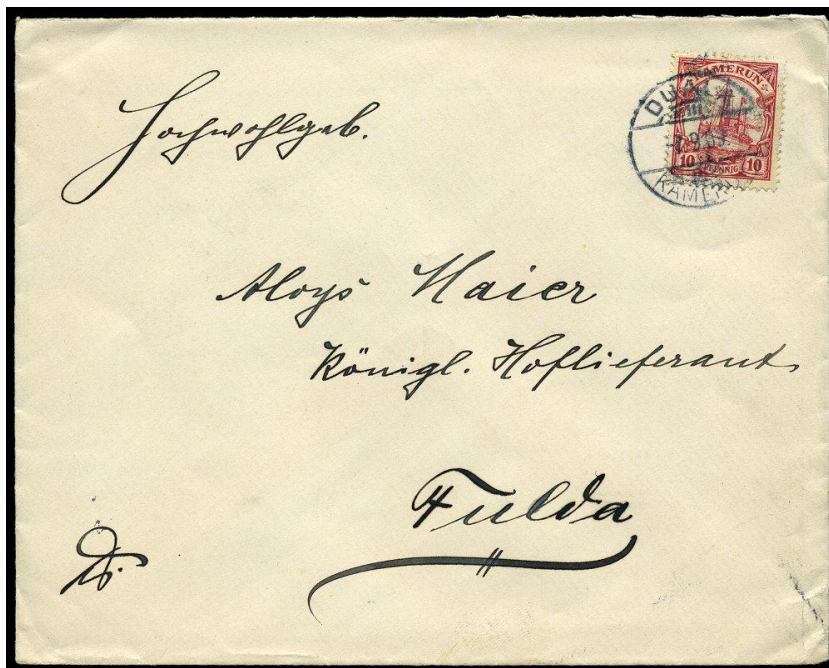 Hochwohlgeb.
KAMERUN
10 PFENNIG 10
DUALA
KAMERUN
Aloys Maier
Königl. Hoflieferant
Fulda